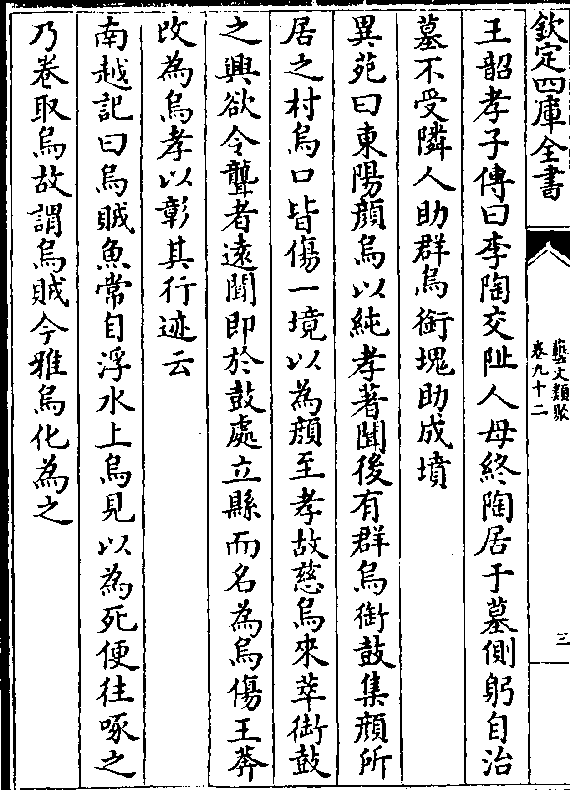 欽定四庫全書
藝文類聚
卷九十二
三
王韶孝子傳曰李陶交阯人母終陶居于墓側躬自治
墓不受隣人助群烏銜塊助成墳
異苑曰東陽顔烏以純孝著聞後有群烏銜鼓集顔所
居之村烏口皆傷一境以為顔至孝故慈烏來萃銜鼓
之興欲令聾者遠聞即於鼓處立縣而名為烏傷王莽
改為烏孝以彰其行迹云
南越記曰烏賊魚常自浮水上烏見以為死便往啄之
乃卷取烏故謂烏賊今雅烏化為之